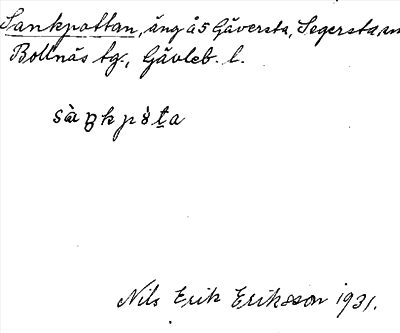 Sankpottan, äng å 5 Gåversta, Segersta sn
Bollnäs tg., Gävleb. l.
Nils Erik Eriksson 1931.